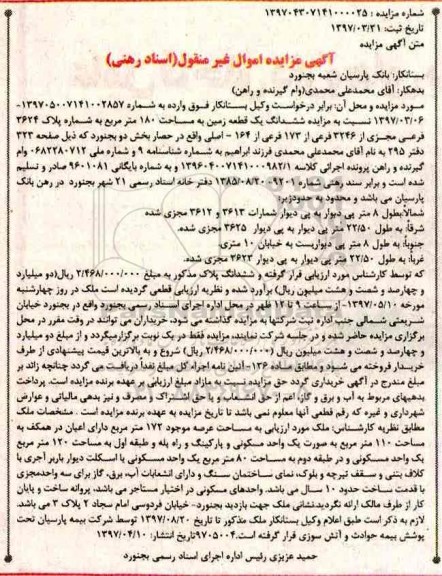 شماره مزایده : ۱۳۹۷۰۴۳۰۷۱۴۱۰۰۰۰۲۵
تاریخ ثبت: ۱۳۹۷/۰۳/۲۱
متن آگهی مزایده
آگهی مزایده اموال غیر منقول(اسناد رهنی)
بستانکار: بانک پارسیان شعبه بجنورد
بدهکار: آقای محمدعلی محمدی(وام گیرنده و راهن)
مورد مزایده و محل آن: برابر درخواست وکیل بستانکار فوق وارده به شماره ۱۳۹۷۰۵۰۰۷۱۴۱۰۰۲۸۵۷-
۱۳۹۷/۰۳/۰۶ نسبت به مزایده ششدانگ یک قطعه زمین به مساحت ۱۸۰ متر مربع به شماره پلاک ۳۶۲۴
فرعی مجزی از ۳۲۴۶ فرعی از ۱۷۳ فرعی از ۱۶۴ - اصلی واقع در حصار بخش دو بجنورد که ذیل صفحه ۳۲۳
دفتر ۲۹۵ به نام آقای محمدعلی محمدی فرزند ابراهیم به شماره شناسنامه ۹ و شماره ملی ۰۶۸۲۲۸۰۷۱۲ وام
گیرنده و راهن پرونده اجرائی کلاسه ۱۳۹۶۰۴۰۰۷۱۴۱۰۰۰۹۸۲/۱ و به شماره بایگانی ۹۶۰۱۰۸۱ صادر و تسلیم
شده است و برابر سند رهنی شماره ۹۲۰۱-۱۳۸۵/۰۸/۲۰ دفتر خانه اسناد رسمی ۲۱ شهر بجنورد در رهن بانک
پارسیان می باشد و محدود به حدودزیر:
شمالا:بطول ۸ متر پی دیوار به پی دیوار شمارات ۳۶۱۳ و ۳۶۱۲ مجزی شده
شرقاً: به طول ۲۲/۵۰ متر پی دیوار به پی دیوار ۳۶۲۵ مجزی شده.
جنوباً: به طول ۸ متر پی دیواریست به خیابان ۱۰ متری.
غرباً: به طول ۲۲/۵۰ متر پی دیوار به پی دیوار ۳۶۲۳ مجزی شده.
که توسط کارشناس مورد ارزیابی قرار گرفته و ششدانگ پلاک مذکور به مبلغ ۲/۴۶۸/۰۰۰/۰۰۰ ریال(دو میلیارد
و چهارصد و شصت و هشت میلیون ریال) برآورد شده و نظریه ارزیابی قطعی گردیده است ملک در روز چهارشنبه
مورخه ۱۳۹۷/۰۵/۱۰- از ساعت ۹ تا ۱۲ ظهر در محل اداره اجرای اسناد رسمی بجنورد واقع در بجنورد خیابان
شریعتی شمالی جنب اداره ثبت شرکتها به مزایده گذاشته می شود، خریداران می توانند در وقت مقرر در محل
برگزاری مزایده حاضر شده و در جلسه شرکت نمایند مزایده فقط در یک نوبت برگزارمیگردد و از مبلغ دو میلیارد
و چهارصد و شصت و هشت میلیون ریال (۲/۴۶۸/۰۰۰/۰۰۰ ریال) شروع و به بالاترین قیمت پیشنهادی از طرف
خریدار فروخته می شود و مطابق ماده ۱۳۶-آئین نامه اجراء کل مبلغ نقداً دریافت می گردد چنانچه زائد بر
مبلغ مندرج در آگهی خریداری گردد حق مزایده نسبت به مازاد مبلغ ارزیابی بر عهده برنده مزایده است. پرداخت
بدهیهای مربوط به آب و برق و گاز، اعم از حق انشعاب و یا حق اشتراک و مصرف و نیز بدهی مالیاتی و عوارض
شهرداری و غیره که رقم قطعی آنها معلوم نمی باشد تا تاریخ مزایده به عهده برنده مزایده است . مشخصات ملک
مطابق نظریه کارشناس: ملک مورد ارزیابی به مساحت عرصه موجود ۱۷۲ متر مربع دارای اعیان در همکف به
مساحت ۱۱۰ متر مربع به صورت یک واحد مسکونی و پارکینگ و راه پله و طبقه اول به مساحت ۱۲۰ متر مربع
یک واحد مسکونی و در طبقه دوم به مساحت ۸۰ متر مربع یک واحد مسکونی با اسکلت دیوار باربر آجری با
کلاف بتنی و سقف تیرچه و بلوک، نمای ساختمان سنگ و دارای انشعابات آب، برق، گاز برای سه واحدمجزی
با قدمت ساخت حدود ۱۰ سال می باشد. واحدهای مسکونی در اختیار مستأجر می باشد، پروانه ساخت و پایان
کار از طرف مالک ارائه نگردید.نشانی ملک جهت بازدید بجنورد- خیابان فردوسی امام سجاد ۲ پلاک ۳ می باشد.
لازم به ذکر است طبق اعلام وکیل بستانکار ملک مذکور تا تاریخ ۱۳۹۷/۰۸/۲۰ توسط شرکت بیمه پارسیان تحت
پوشش بیمه حوادث و آتش سوزی قرار گرفته است.۹۷۰۵۰۰۴تاریخ انتشار: ۱۳۹۷/۰۴/۱۰
حمید عزیزی رئیس اداره اجرای اسناد رسمی بجنورد